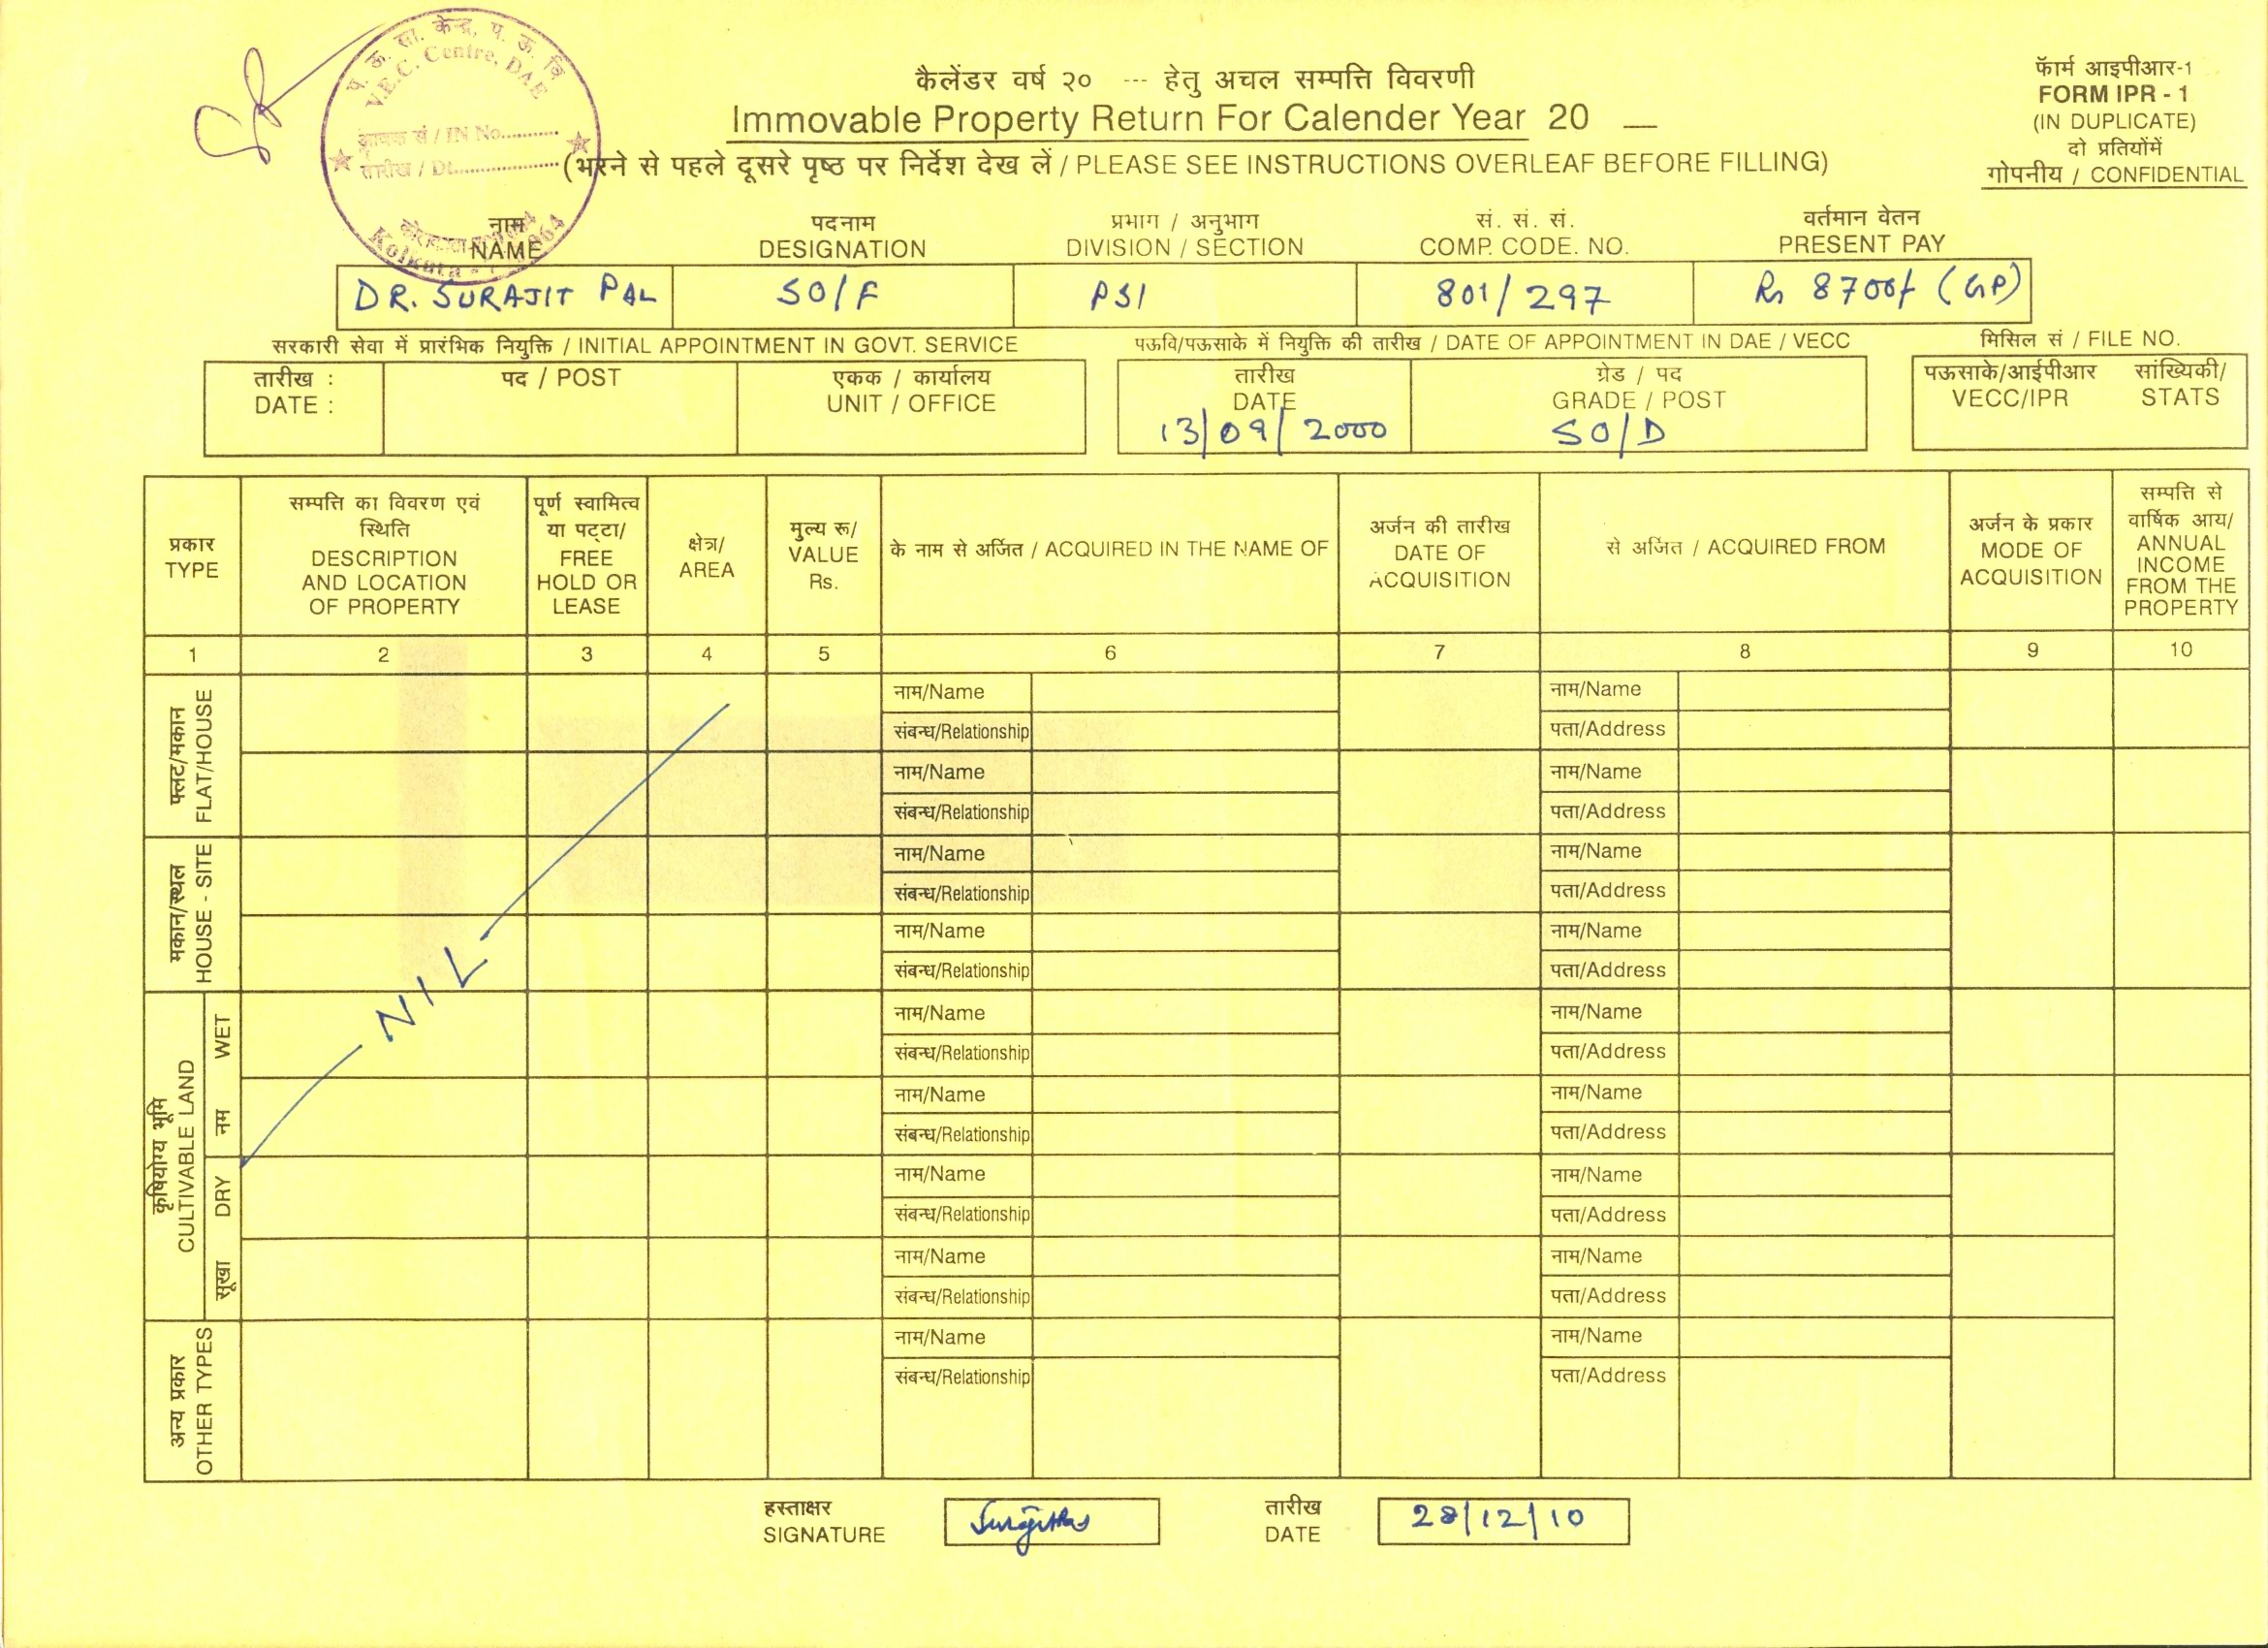 प. ऊ. सा. केन्द्र, प. ऊ. वि
V.E.C. Centre, DAE
आवक सं / IN No...........
तारीख / Dt.....................
कैलेंडर वर्ष २० --- हेतु अचल सम्पत्ति विवरणी
Immovable Property Return For Calender Year 20 __
(भरने से पहले दूसरे पृष्ठ पर निर्देश देख लें / PLEASE SEE INSTRUCTIONS OVERLEAF BEFORE FILLING)
फॅार्म आइपीआर-1
FORM IPR - 1
(IN DUPLICATE)
दो प्रतियोंमें
गोपनीय / CONFIDENTIAL
Kolkata -
नाम पदनाम प्रभाग / अनुभाग सं. सं. सं. वर्तमान वेतन
NAME DESIGNATION DIVISION / SECTION COMP. CODE. NO. PRESENT PAY
DR. SURAJIT PAL SO/F PSI 801/297 Rs 8700/- (GP)
सरकारी सेवा में प्रारंभिक नियुक्ति / INITIAL APPOINTMENT IN GOVT. SERVICE पऊवि/पऊसाके में नियुक्ति की तारीख / DATE OF APPOINTMENT IN DAE / VECC मिसिल सं / FILE NO.
तारीख : पद / POST एकक / कार्यालय तारीख ग्रेड / पद पऊसाके/आईपीआर सांख्यिकी/
DATE : UNIT / OFFICE DATE GRADE / POST VECC/IPR STATS
13/09/2000 SO/D
प्रकार
TYPE
सम्पत्ति का विवरण एवं
स्थिति
DESCRIPTION
AND LOCATION
OF PROPERTY
पूर्ण स्वामित्व
या पट्टा/
FREE
HOLD OR
LEASE
क्षेत्र/
AREA
मुल्य रू/
VALUE
Rs.
के नाम से अर्जित / ACQUIRED IN THE NAME OF
अर्जन की तारीख
DATE OF
ACQUISITION
से अर्जित / ACQUIRED FROM
अर्जन के प्रकार
MODE OF
ACQUISITION
सम्पत्ति से
वार्षिक आय/
ANNUAL
INCOME
FROM THE
PROPERTY
1 2 3 4 5 6 7 8 9 10
फ्लट/मकान
FLAT/HOUSE
नाम/Name नाम/Name
संबन्ध/Relationship पता/Address
नाम/Name नाम/Name
संबन्ध/Relationship पता/Address
मकान/स्थल
HOUSE - SITE
नाम/Name नाम/Name
संबन्ध/Relationship पता/Address
नाम/Name नाम/Name
संबन्ध/Relationship पता/Address
NIL
कृषियोग्य भूमि
CULTIVABLE LAND
नम WET
नाम/Name नाम/Name
संबन्ध/Relationship पता/Address
नाम/Name नाम/Name
संबन्ध/Relationship पता/Address
सूखा DRY
नाम/Name नाम/Name
संबन्ध/Relationship पता/Address
नाम/Name नाम/Name
संबन्ध/Relationship पता/Address
अन्य प्रकार
OTHER TYPES
नाम/Name नाम/Name
संबन्ध/Relationship पता/Address
हस्ताक्षर तारीख
SIGNATURE DATE 28/12/10